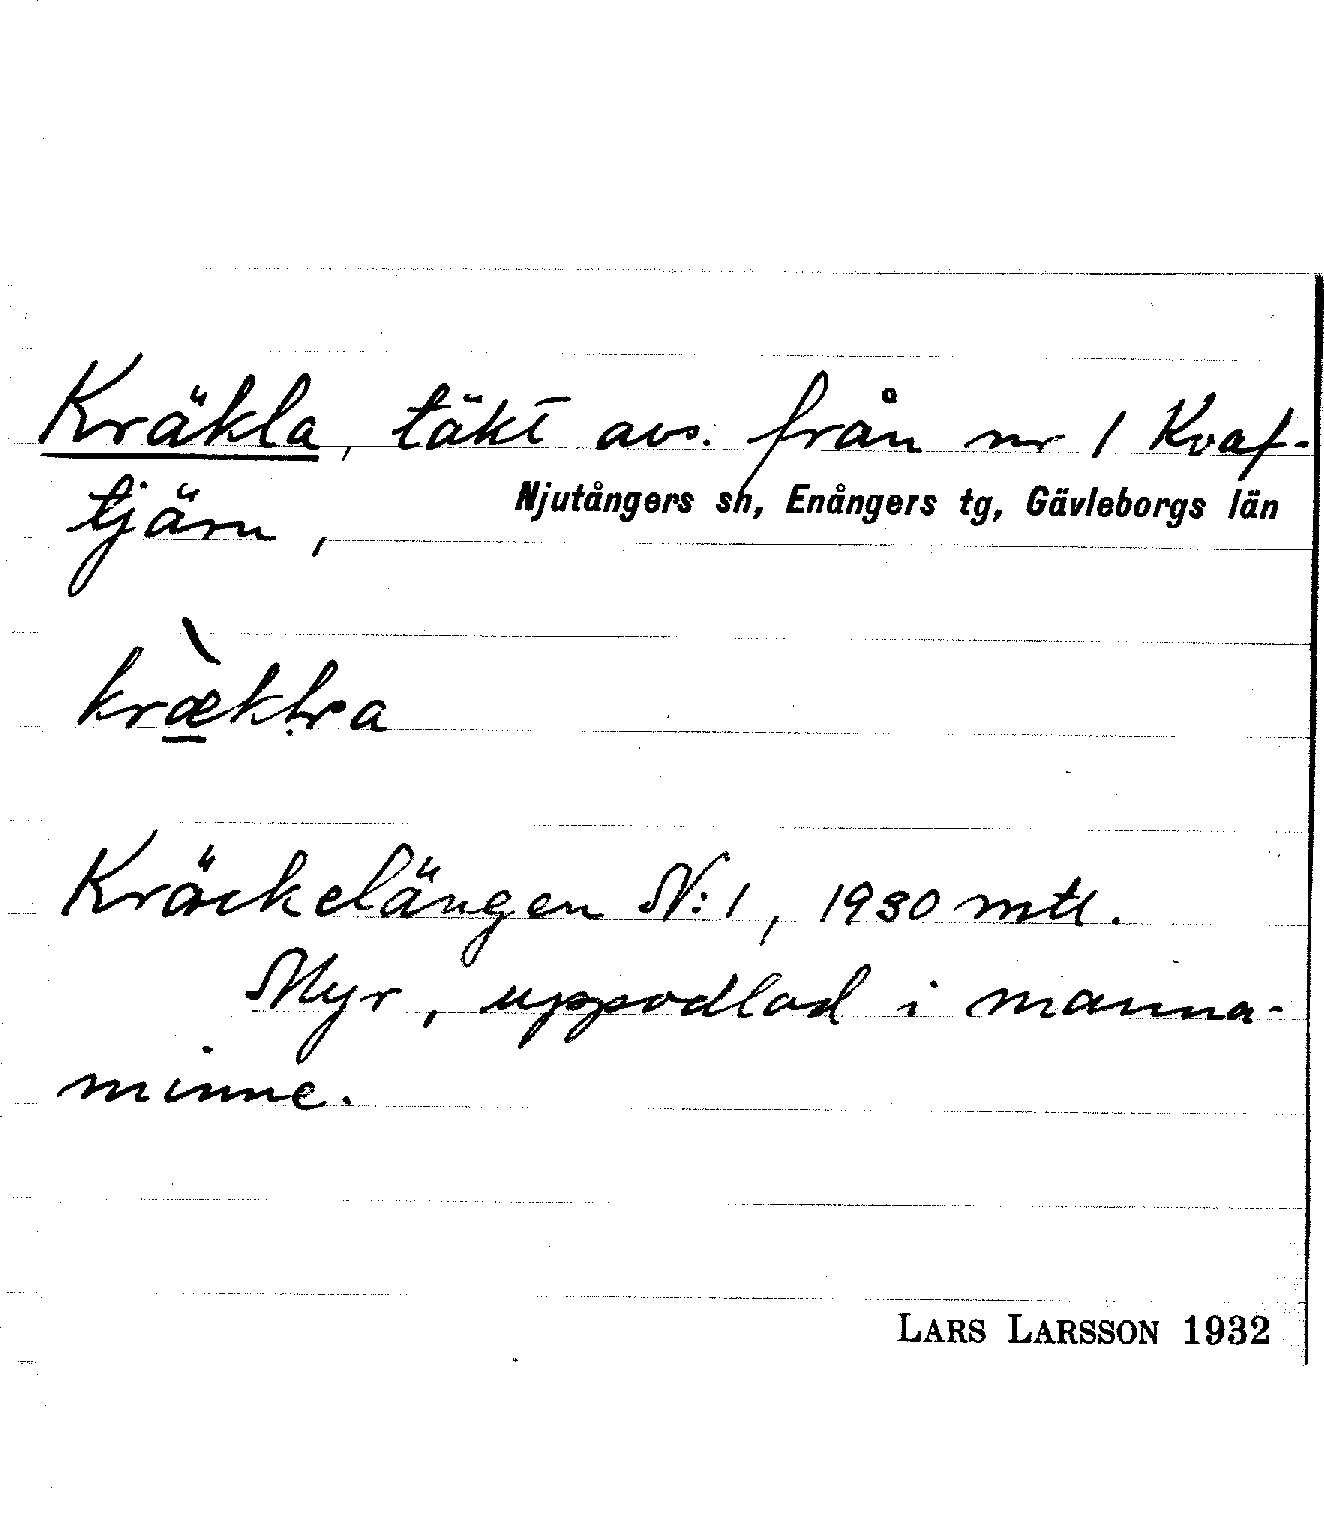 Kräkla, täkt avs. från nr 1 Kvaf-
tjärn,
Njutångers sn, Enångers tg, Gävleborgs län
Kräckelängen N:1, 1930 mtl.
Myr, uppodlad i manna-
minne.
LARS LARSSON 1932